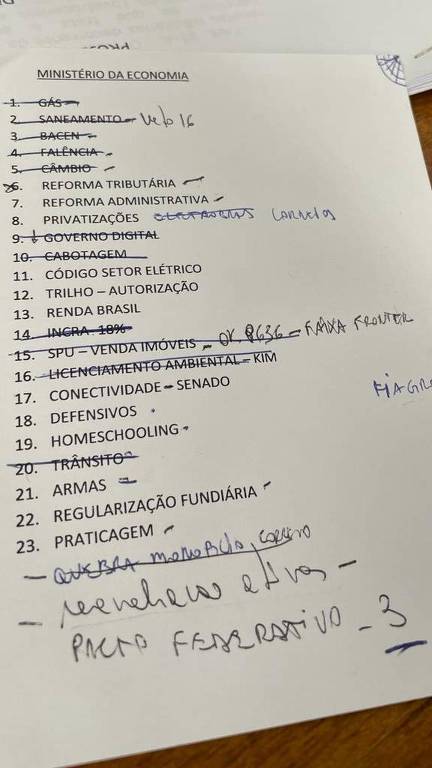 MINISTÉRIO DA ECONOMIA
1. GÁS
2. SANEAMENTO - Veto 16
3. BACEN
4. FALÊNCIA
5. CÂMBIO
6. REFORMA TRIBUTÁRIA
7. REFORMA ADMINISTRATIVA
8. PRIVATIZAÇÕES ELETROBRAS CORREIOS
9. GOVERNO DIGITAL
10. CABOTAGEM
11. CÓDIGO SETOR ELÉTRICO
12. TRILHO – AUTORIZAÇÃO
13. RENDA BRASIL
14. INCRA 18%
15. SPU – VENDA IMÓVEIS - OK. = FAIXA FRONTER
16. LICENCIAMENTO AMBIENTAL – KIM
17. CONECTIVIDADE – SENADO
FIAGRO
18. DEFENSIVOS
19. HOMESCHOOLING
20. TRÂNSITO
21. ARMAS
22. REGULARIZAÇÃO FUNDIÁRIA
23. PRATICAGEM
- QUEBRA MONOPOLIO CORREIO
PACTO FEDERATIVO - 3